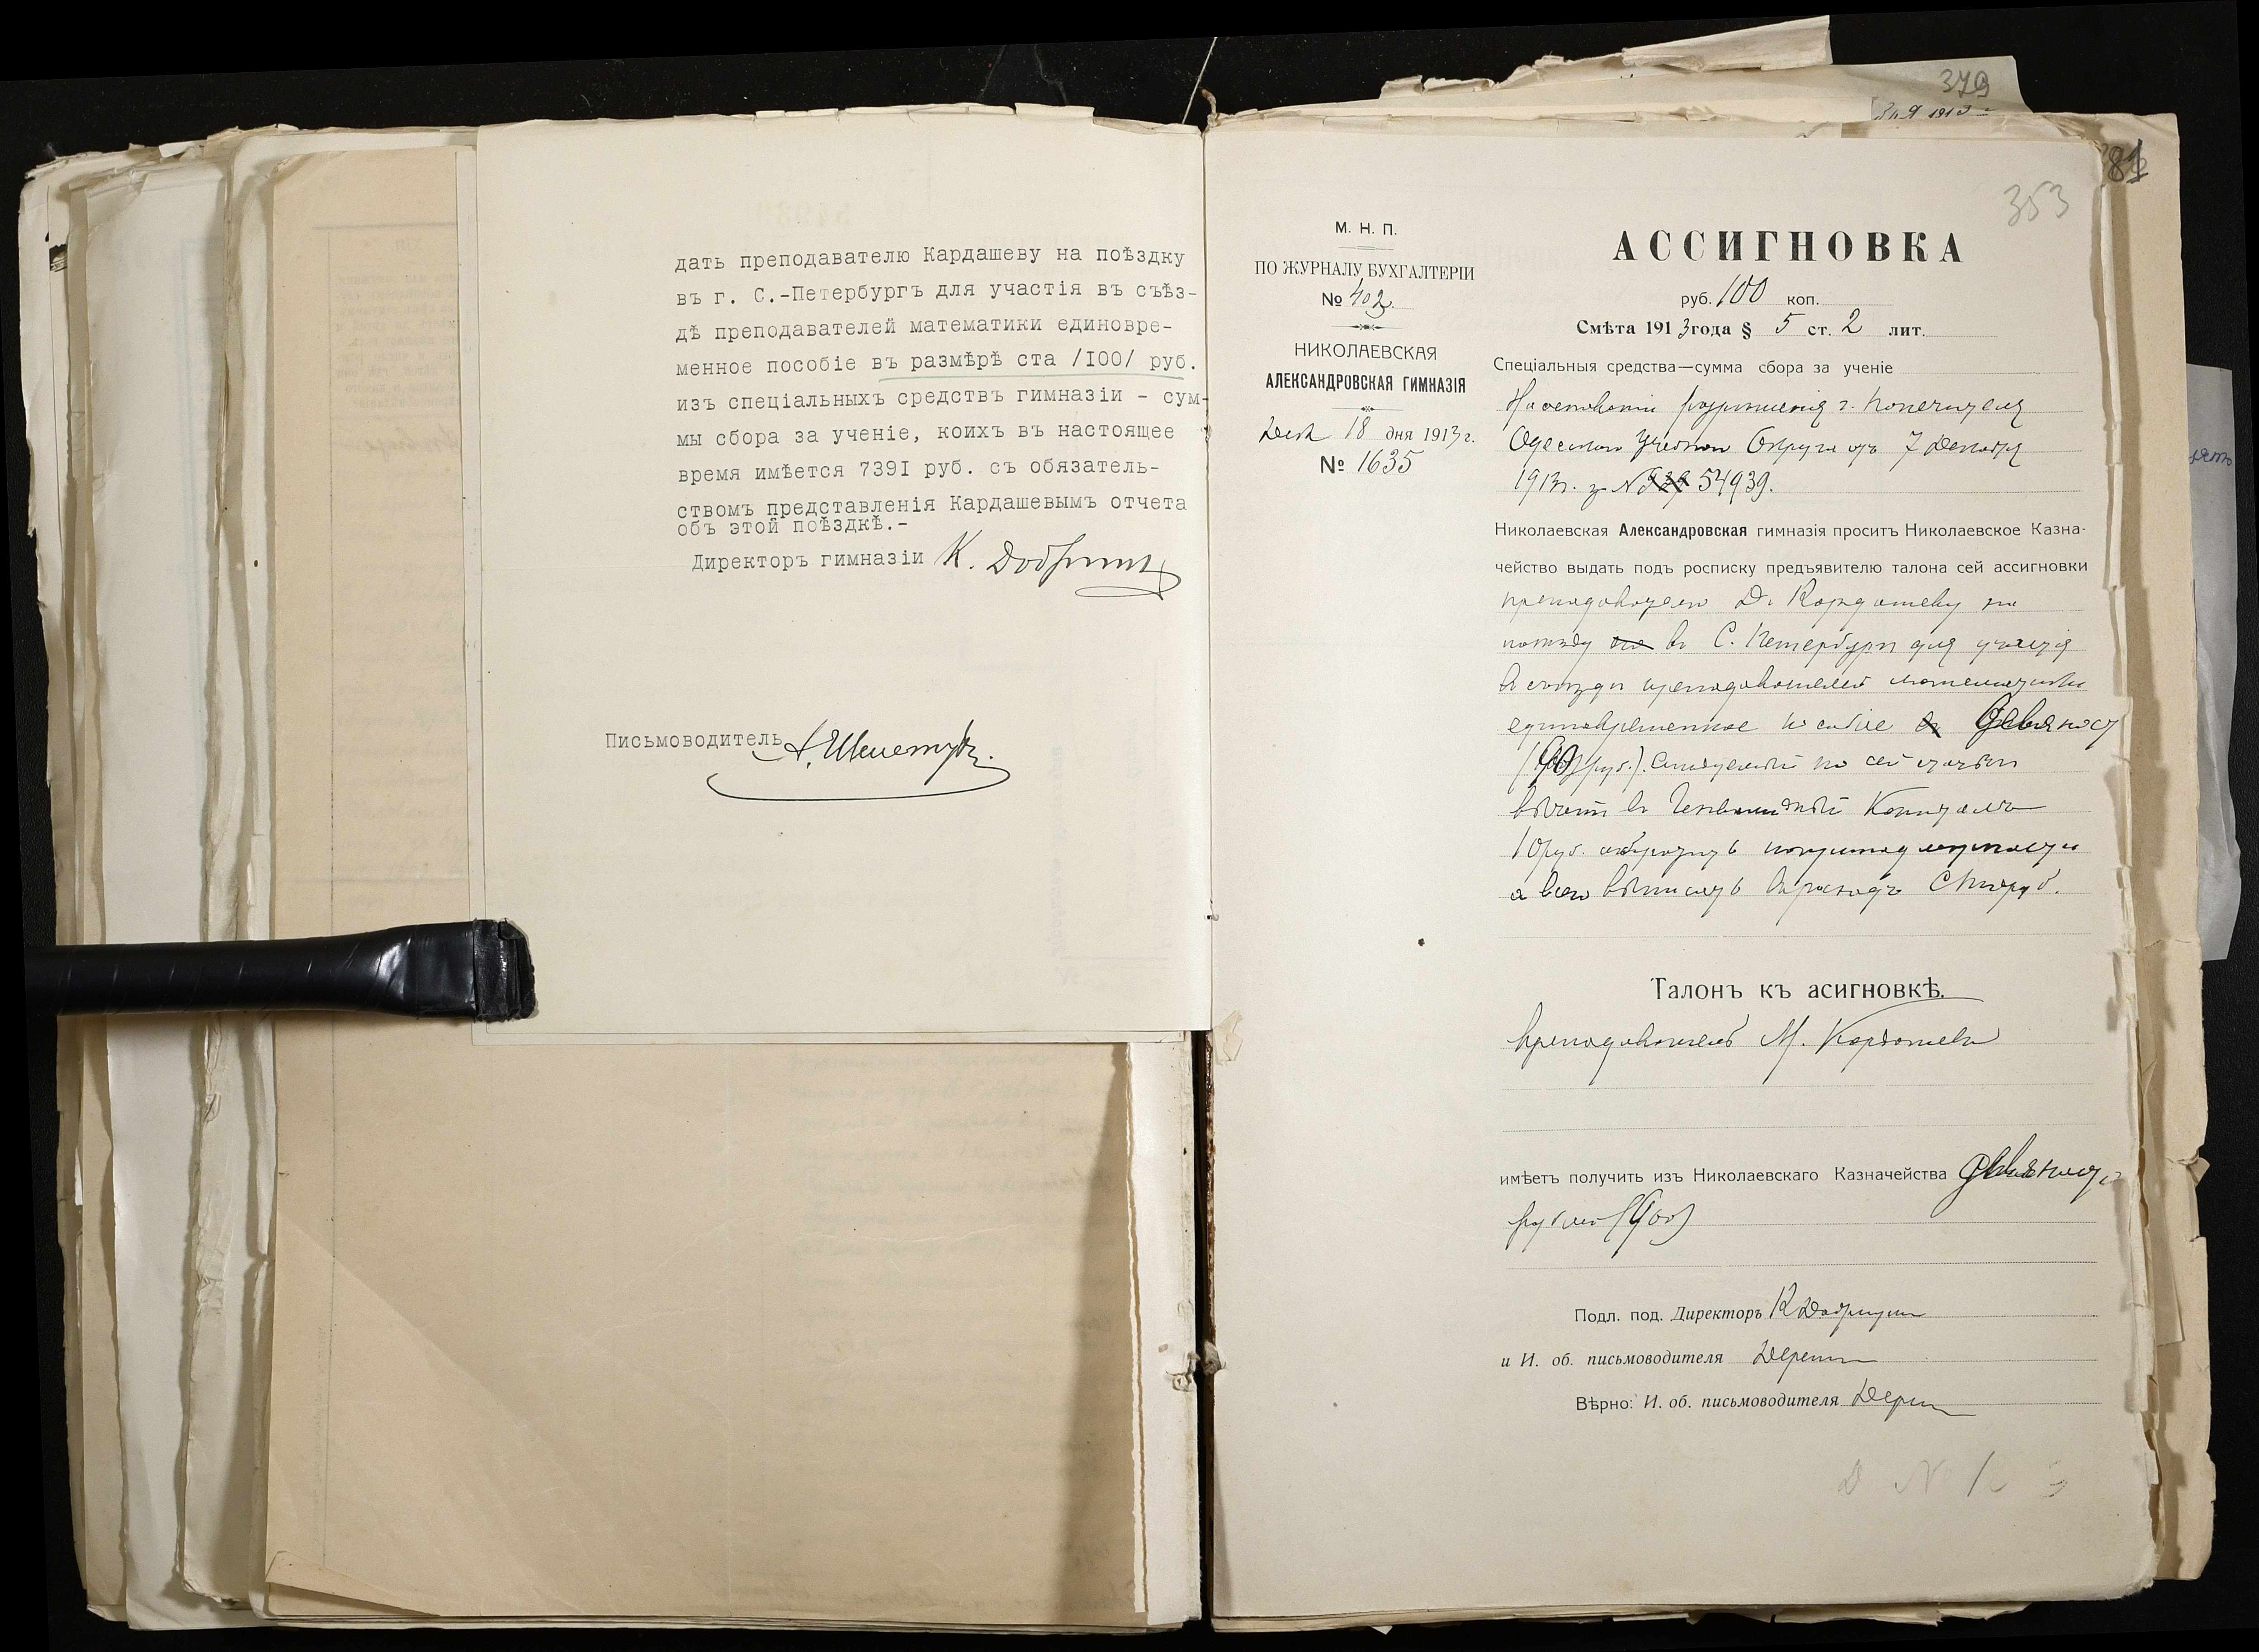 дать преподавателю Кардашеву на поѣздку
въ г. С.-Петербургъ для участія въ съѣз-
дѣ преподавателей математики единовре-
менное пособіе въ размѣрѣ ста /I00/ руб.
изъ спеціальныхъ средствъ гимназіи - сум-
мы сбора за ученіе, коихъ въ настоящее
время имѣется 739I руб. съ обязатель-
ствомъ представленія Кардашевымъ отчета
объ этой поѣздкѣ.-
Директоръ гимназіи К.
Письмоводитель
379
1913
353
М. Н. П.
ПО ЖУРНАЛУ БУХГАЛТЕРІИ
№ 402.
НИКОЛАЕВСКАЯ
АЛЕКСАНДРОВСКАЯ ГИМНАЗІЯ
Дек 18 дня 1913 г.
№ 1635
АССИГНОВКА
руб. 100 коп.
Смѣта 1913 года § 5 ст. 2 лит.
Спеціальныя средства—сумма сбора за ученіе
На основаніи разрѣшенія г. Попечителя
Одесскаго Учебнаго Округа отъ 7 Декабря
1913 г. за № 54939.
Николаевская Александровская гимназія проситъ Николаевское Казна-
чейство выдать подъ росписку предъявителю талона сей ассигновки
преподавателю Д. Кардашеву на
поѣздку въ С. Петербургъ для участія
въ съѣздѣ преподавателей математики
единовременное пособіе девяносто
(90 руб.). Слѣдуемый по сей
вычетъ въ Капиталъ
10 руб.
а всего въ расходъ Сто руб.
Талонъ къ асигновкѣ.
преподаватель М. Кардашевъ
имѣетъ получить изъ Николаевскаго Казначейства девяносто
рублей (90)
Подл. под. Директоръ К Добрицын
и И. об. письмоводителя
Вѣрно: И. об. письмоводителя